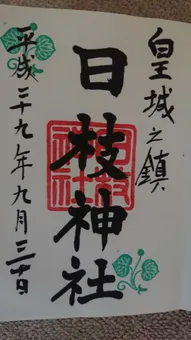 皇城之鎮
日枝神社
平成二十九年九月三十日